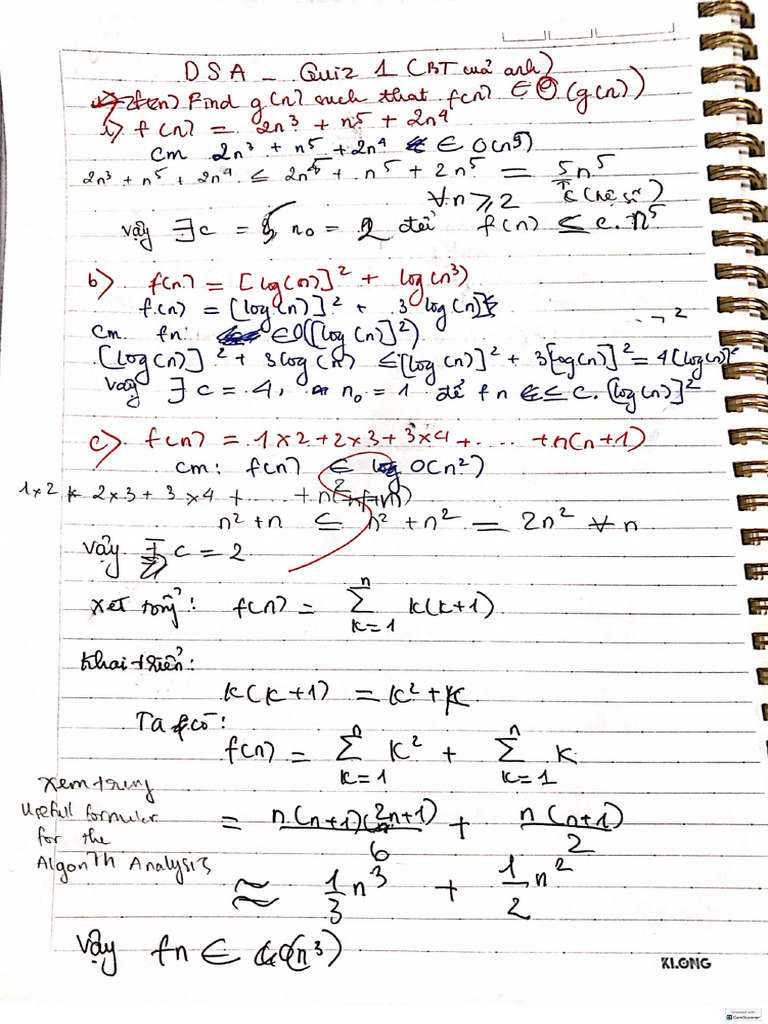 DSA - Quiz 1 (BT của anh)
Find g(n) such that f(n) ∈ Θ(g(n))
f(n) = 2n³ + n⁵ + 2n⁴
cm 2n³ + n⁵ + 2n⁴ ∈ O(n⁵)
2n³ + n⁵ + 2n⁴ ≤ 2n⁵ + n⁵ + 2n⁵ = 5n⁵
∀n ≥ 2 c (hệ số)
vậy ∃ c = 5 n₀ = 2 để f(n) ≤ c.n⁵
b) f(n) = [log(n)]² + log(n³)
f(n) = [log(n)]² + 3 log(n)
cm fn: ∈ O([log(n)]²)
[log(n)]² + 3log(n) ≤ [log(n)]² + 3[log(n)]² = 4[log(n)]²
Vậy ∃ c = 4, n₀ = 1 để fn ≤ c. [log(n)]²
c) f(n) = 1×2 + 2×3 + 3×4 + ... + n(n+1)
cm: f(n) ∈ O(n²)
1×2 + 2×3 + 3×4 + ... +
n² + n ≤ n² + n² = 2n² ∀n
Vậy ∃ c = 2
Xét tổng: f(n) = ∑ₖ₌₁ⁿ k(k+1)
Khai triển:
k(k+1) = k² + k
Ta có:
f(n) = ∑ₖ₌₁ⁿ k² + ∑ₖ₌₁ⁿ k
Xem trung
Usefull formuler
for the
Algorith Analysis
= n(n+1)(2n+1)/6 + n(n+1)/2
≈ 1/3 n³ + 1/2 n²
Vậy fn ∈ O(n³)
KLONG
CamScanner